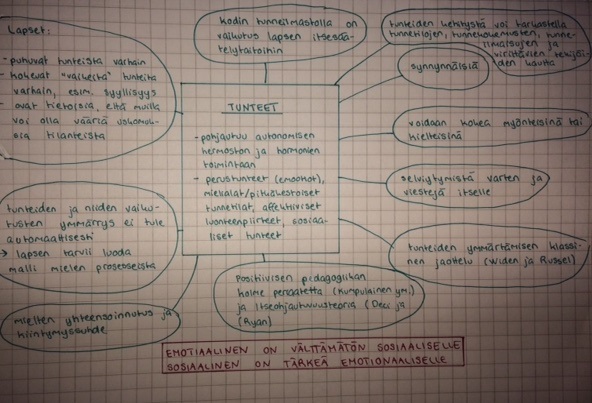 Lapset:
- puhuvat tunteista varhain
- kokevat "vaikeita" tunteita
varhain, esim. syyllisyys
- ovat tietoisia, että muilla
voi olla vääriä uskomuk-
sia tilanteista
kodin tunneilmastolla on
vaikutus lapsen itsesää-
telytaitoihin
tunteiden kehitystä voi tarkastella
tunnetilojen, tunnekokemusten, tunne-
ilmaisujen ja
virittävien tekijöi-
den kautta
synnynnäisiä
TUNTEET
- pohjautuu autonomisen
hermoston ja hormonien
toimintaan
- perustunteet (emootiot),
mielialat/pitkäkestoiset
tunnetilat, affektiiviset
luonteenpiirteet, sosiaa-
liset tunteet
voidaan kokea myönteisinä tai
kielteisinä
selviytymistä varten ja
viestejä itselle
tunteiden ymmärtämisen klassi-
nen jaottelu (Widen ja Russel)
tunteiden ja niiden vaiku-
tusten ymmärrys ei tule
automaattisesti
→ lapsen tarvii luoda
malli mielen prosesseista
mielten yhteensoinnutus ja
kiintymyssuhde
Positiivisen pedagogiikan
kolme periaatetta (Kumpulainen ym.)
ja itseohjautuvuusteoria (Deci ja
Ryan)
EMOTIAALINEN ON VÄLTTÄMÄTÖN SOSIAALISELLE
SOSIAALINEN ON TÄRKEÄ EMOTIONAALISELLE